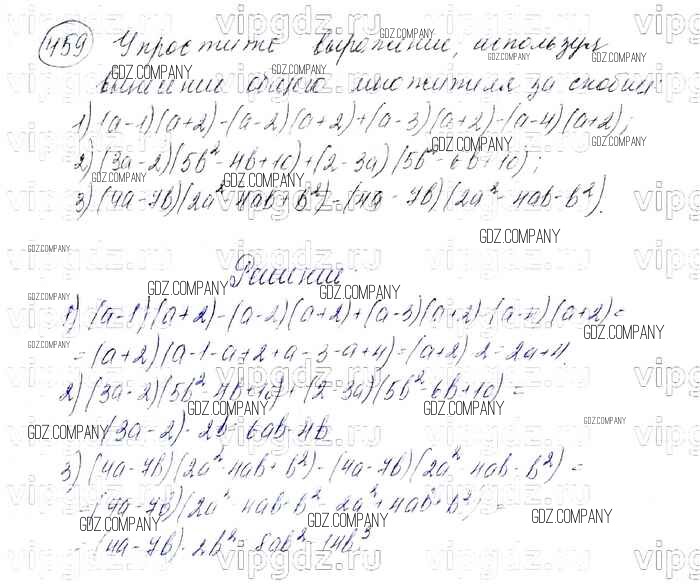 459 Упростите выражение, используя
вынесение общего множителя за скобки:
1) (a-1)(a+2)-(a-2)(a+2)+(a-3)(a+2)-(a-4)(a+2);
2) (3a-2)(5b²-4b+10)+(2-3a)(5b²-6b+10);
3) (4a-7b)(2a²-4ab+b²)-(4a-7b)(2a²-4ab-b²).
Решение:
1) (a-1)(a+2)-(a-2)(a+2)+(a-3)(a+2)-(a-4)(a+2)=
=(a+2)(a-1-a+2+a-3-a+4)=(a+2)·2=2a+4.
2) (3a-2)(5b²-4b+10)+(2-3a)(5b²-6b+10)=
(3a-2)·2b=6ab-4b
3) (4a-7b)(2a²-4ab+b²)-(4a-7b)(2a²-4ab-b²)=
=(4a-7b)(2a²-4ab+b²-2a²+4ab+b²)=
=(4a-7b)·2b²=8ab²-14b³
vipgdz.ru
GDZ.COMPANY